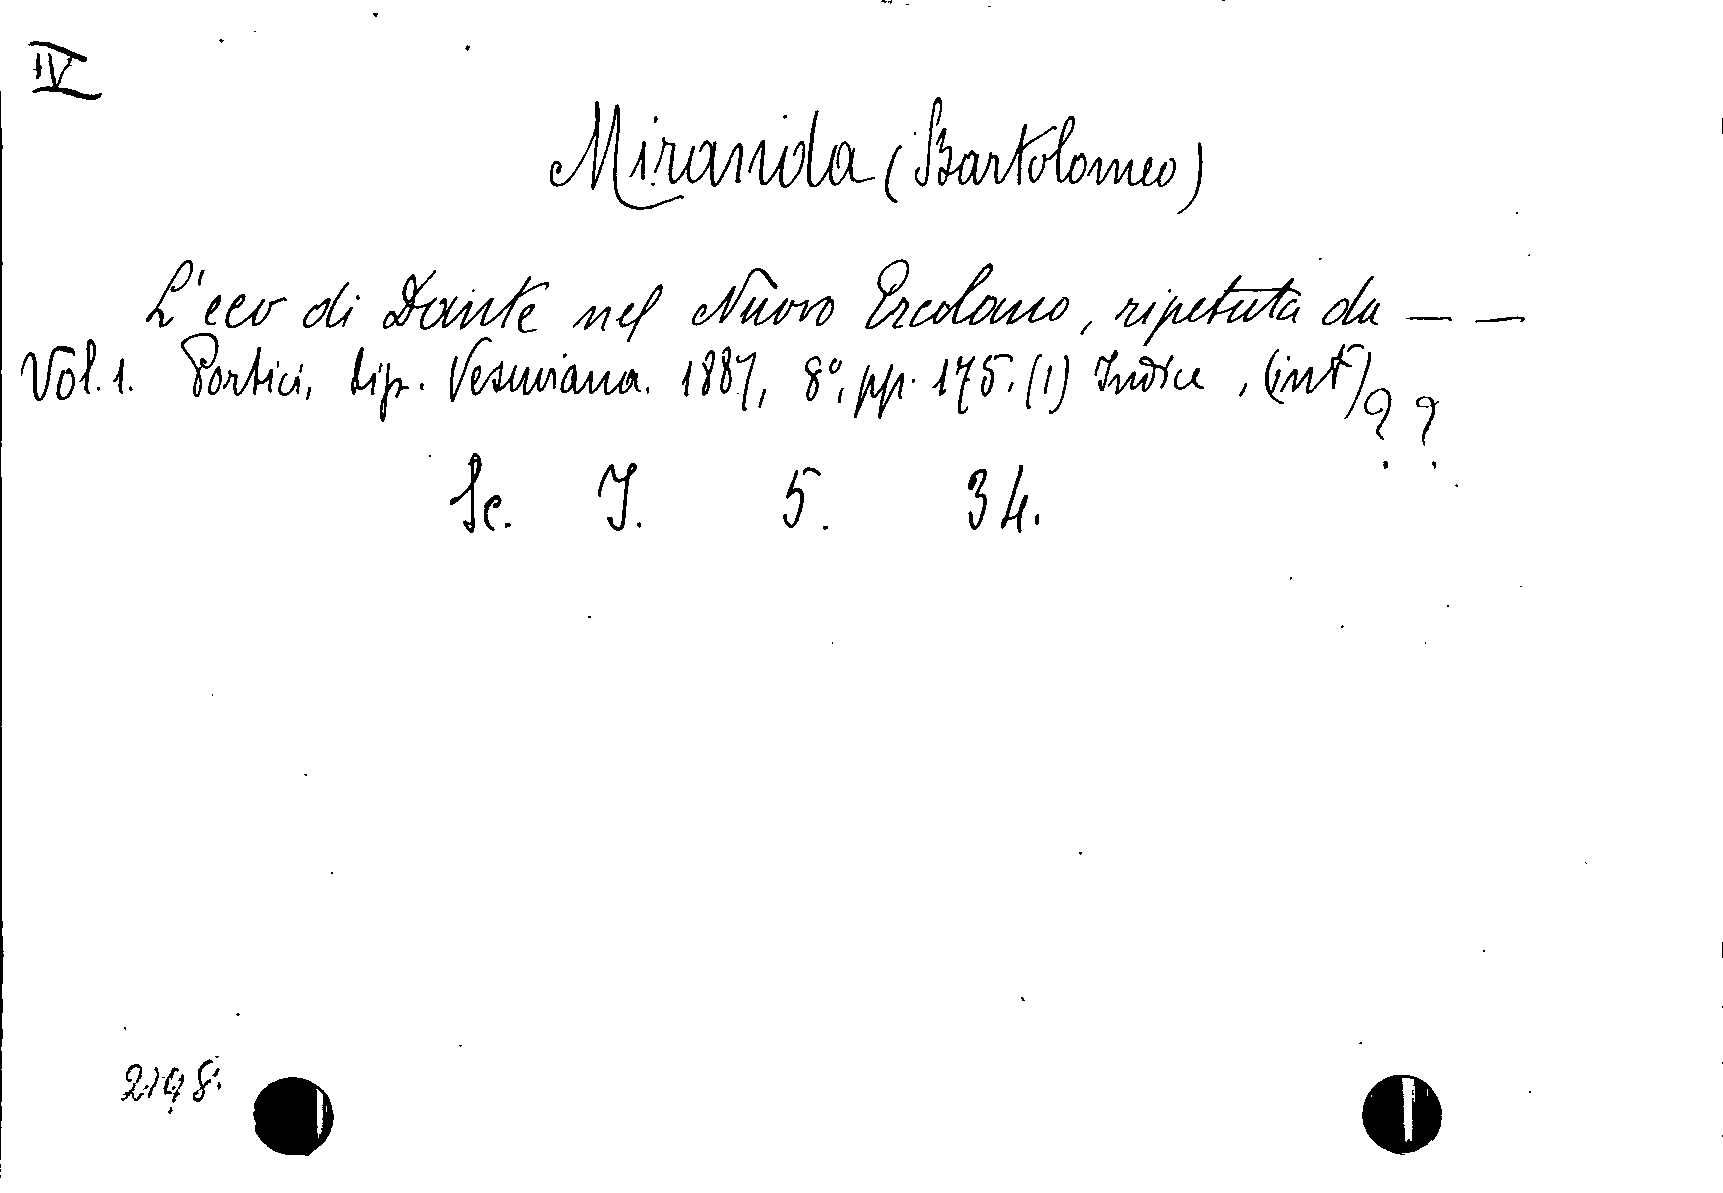 IV
Miranda (Bartolomeo)
L'eco di Dante nel Nuovo Ercolano, ripetuta da — —
Vol. 1. Portici, tip. Vesuviana. 1887, 8°, pp. 175. (1) Indice, (int) ? ?
Sc. I. 5. 34.
2198.